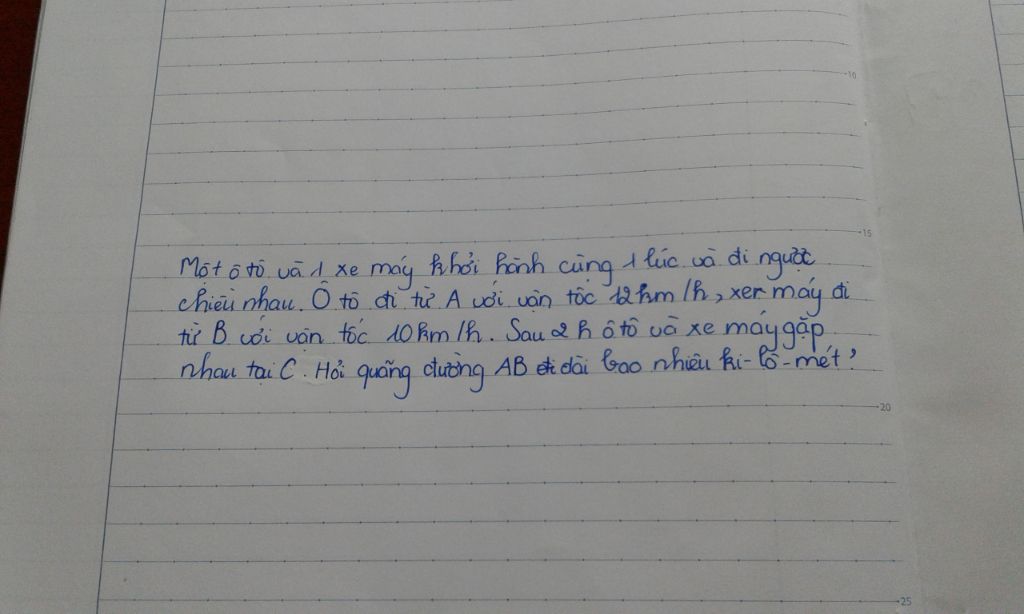 10
15
Một ô tô và 1 xe máy khởi hành cùng 1 lúc và đi ngược
chiều nhau. Ô tô đi từ A với vận tốc 12km/h, xe máy đi
từ B với vận tốc 10km/h. Sau 2h ô tô và xe máy gặp
nhau tại C. Hỏi quãng đường AB dài bao nhiêu ki-lô-mét?
20
25